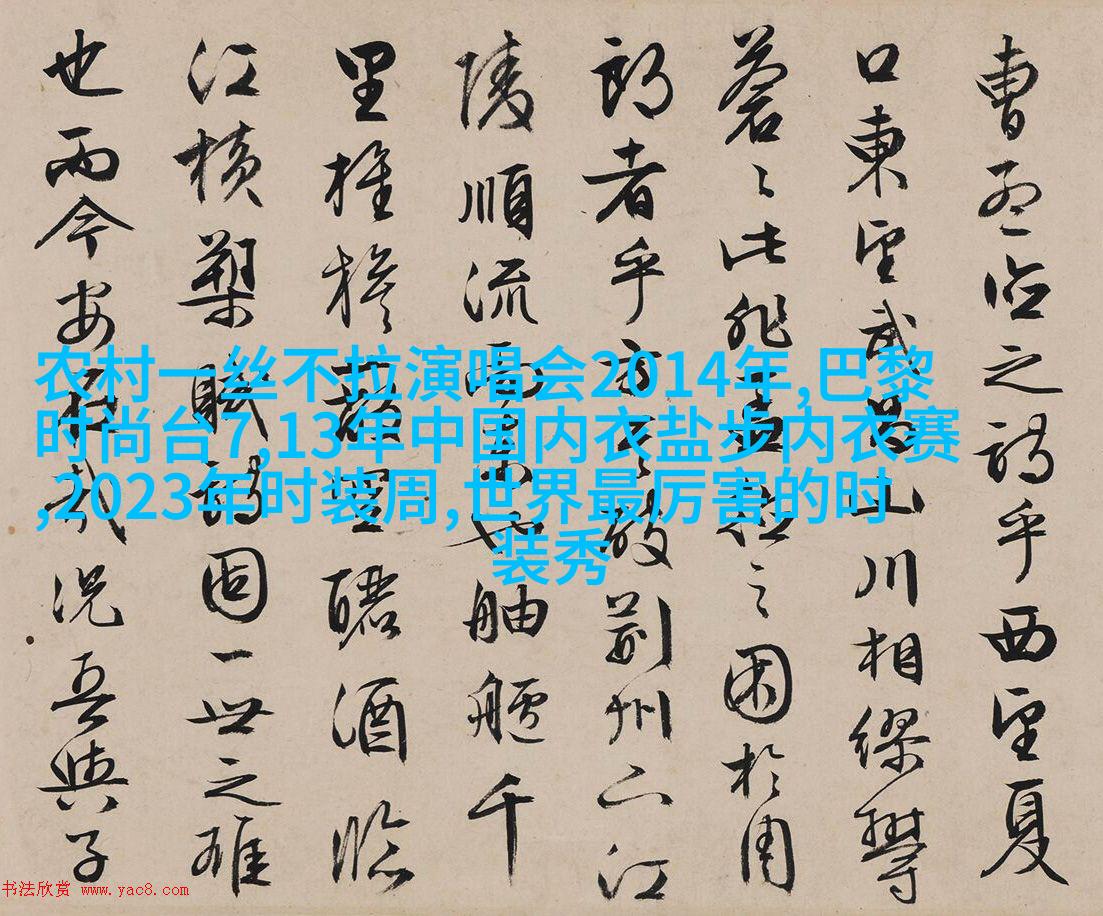 曹孟德之詩乎西望夏
口東望武昌山川相繆鬱
蒼々此非孟德之困於周
郎者乎方其破荊州下江
陵順流而東也舳艫千
里旌旗蔽空釃酒臨
江橫槊賦詩固一世之雄
也而今安在哉況吾與子
农村一丝不拉演唱会2014年,巴黎
时尚台7,13年中国内衣盐步内衣赛
,2023年时装周,世界最厉害的时
装秀
书法欣赏 www.yac8.com